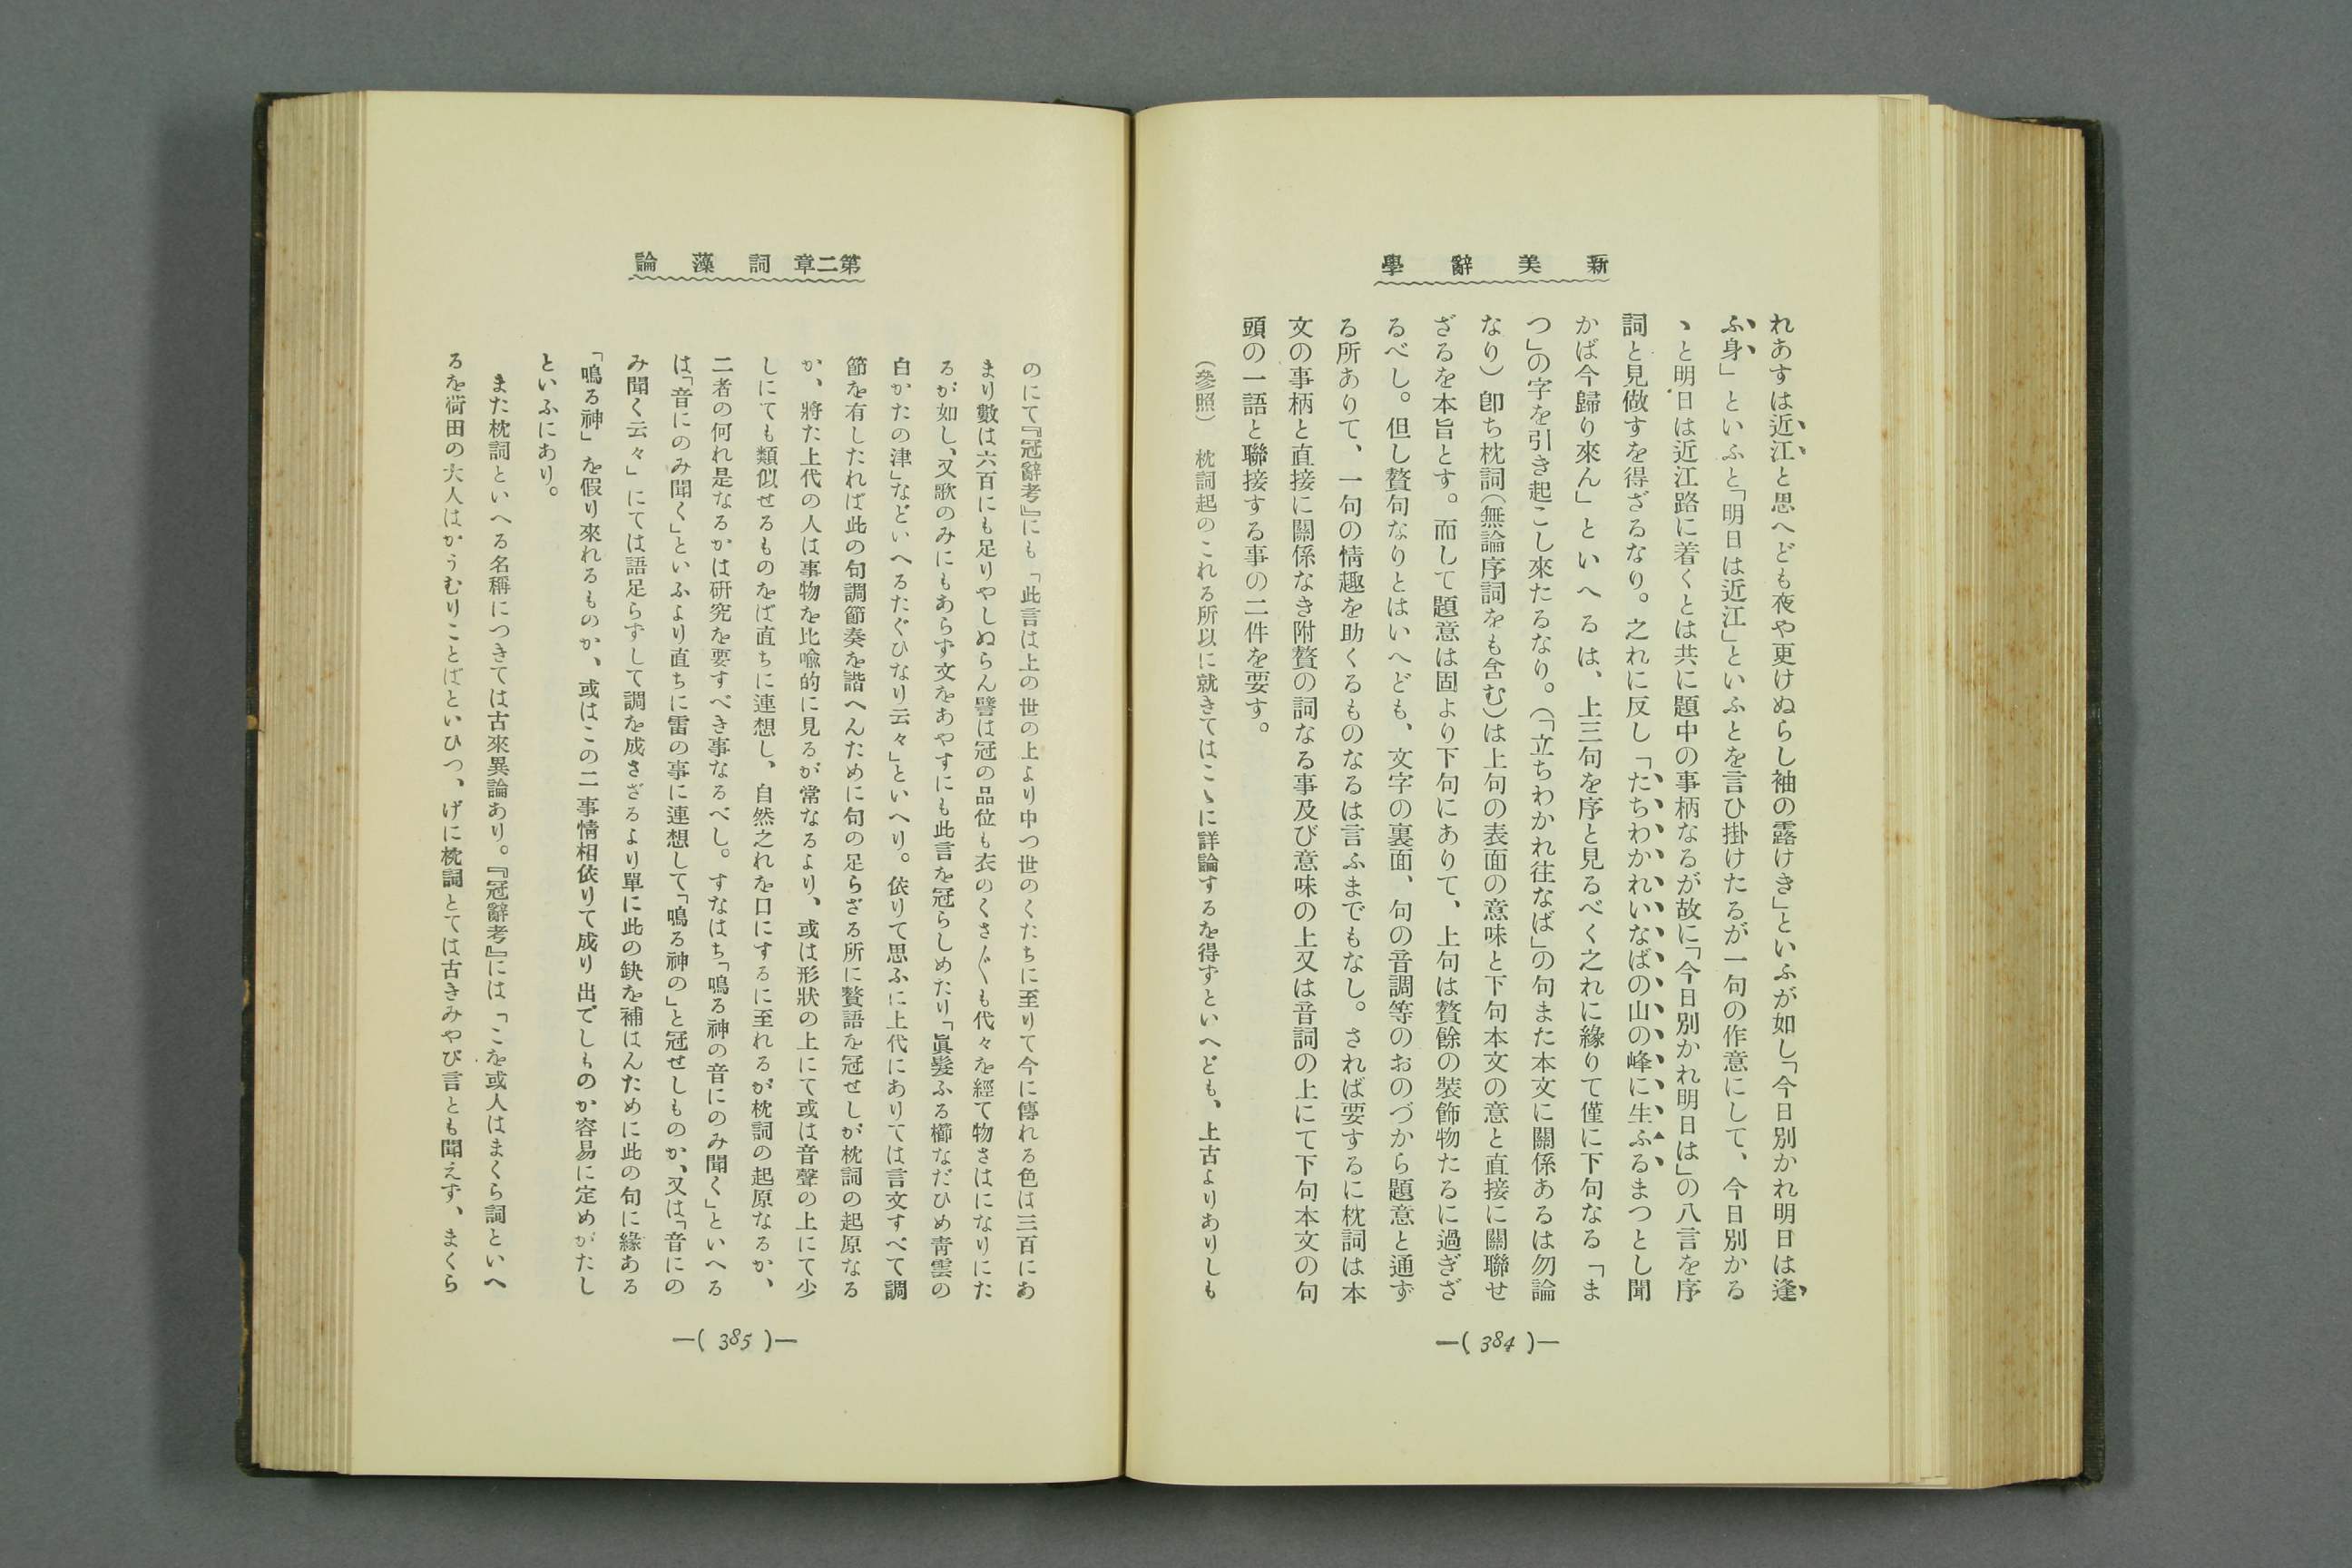 新美辭學
れあすは近江と思へども夜や更けぬらし袖の露けき」といふが如し「今日別かれ明日は逢
ふ身」といふと「明日は近江」といふとを言ひ掛けたるが一句の作意にして、今日別かる
ゝと明日は近江路に着くとは共に題中の事柄なるが故に「今日別かれ明日は」の八言を序
詞と見做すを得ざるなり。之れに反し「たちわかれいなばの山の峰に生ふるまつとし聞
かば今歸り來ん」といへるは、上三句を序と見るべく之れに緣りて僅に下句なる「ま
つ」の字を引き起こし來たるなり。（「立ちわかれ往なば」の句また本文に關係あるは勿論
なり）卽ち枕詞（無論序詞をも含む）は上句の表面の意味と下句本文の意と直接に關聯せ
ざるを本旨とす。而して題意は固より下句にありて、上句は贅餘の裝飾物たるに過ぎざ
るべし。但し贅句なりとはいへども、文字の裏面、句の音調等のおのづから題意と通ず
る所ありて、一句の情趣を助くるものなるは言ふまでもなし。されば要するに枕詞は本
文の事柄と直接に關係なき附贅の詞なる事及び意味の上又は音詞の上にて下句本文の句
頭の一語と聯接する事の二件を要す。
（參照）　枕詞起のこれる所以に就きてはこゝに詳論するを得ずといへども、上古よりありしも
—( 384 )—
第二章　詞藻論
のにて『冠辭考』にも「此言は上の世の上より中つ世のくたちに至りて今に傳れる色は三百にあ
まり數は六百にも足りやしぬらん譬は冠の品位も衣のくさ〴〵も代々を經て物さはになりにた
るが如し、又歌のみにもあらず文をあやすにも此言を冠らしめたり「眞髮ふる櫛なだひめ靑雲の
白かたの津」などいへるたぐひなり云々」といへり。依りて思ふに上代にありては言文すべて調
節を有したれば此の句調節奏を諧へんために句の足らざる所に贅語を冠せしが枕詞の起原なる
か、將た上代の人は事物を比喩的に見るが常なるより、或は形狀の上にて或は音聲の上にて少
しにても類似せるものをば直ちに連想し、自然之れを口にするに至れるが枕詞の起原なるか、
二者の何れ是なるかは研究を要すべき事なるべし。すなはち「鳴る神の音にのみ聞く」といへる
は「音にのみ聞く」といふより直ちに雷の事に連想して「鳴る神の」と冠せしものか、又は「音にの
み聞く云々」にては語足らずして調を成さざるより單に此の缺を補はんために此の句に緣ある
「鳴る神」を假り來れるものか、或はこの二事情相依りて成り出でしものか容易に定めがたし
といふにあり。
また枕詞といへる名稱につきては古來異論あり。『冠辭考』には「こを或人はまくら詞といへ
るを荷田の大人はかうむりことばといひつ、げに枕詞とては古きみやび言とも聞えず、まくら
—( 385 )—